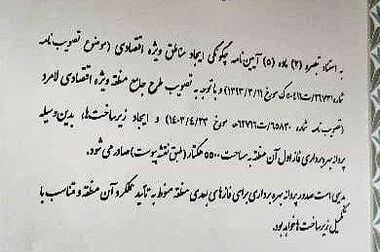 به استناد تبصره (۳) ماده (۵) آیین‌نامه چگونگی ایجاد مناطق ویژه اقتصادی (موضوع تصویب‌نامه
شماره ۳۶۷۳۱/ت۵۰۴۱۱ک مورخ ۱۳۹۳/۳/۱۱) و با توجه به تصویب طرح جامع منطقه ویژه اقتصادی لامرد
(تصویب نامه شماره ۶۵۸۳۰/ت۶۲۷۱۶ه مورخ ۱۴۰۳/۴/۲۳) و ایجاد زیرساخت‌ها، بدین‌وسیله
پروانه بهره‌برداری فاز اول آن منطقه به مساحت ۵۵۰۰ هکتار (طبق نقشه پیوست) صادر می‌شود.
بدیهی است صدور پروانه بهره برداری برای فازهای بعدی منطقه منوط به تأیید عملکرد آن منطقه و متناسب با
تکمیل زیرساخت‌ها خواهد بود.